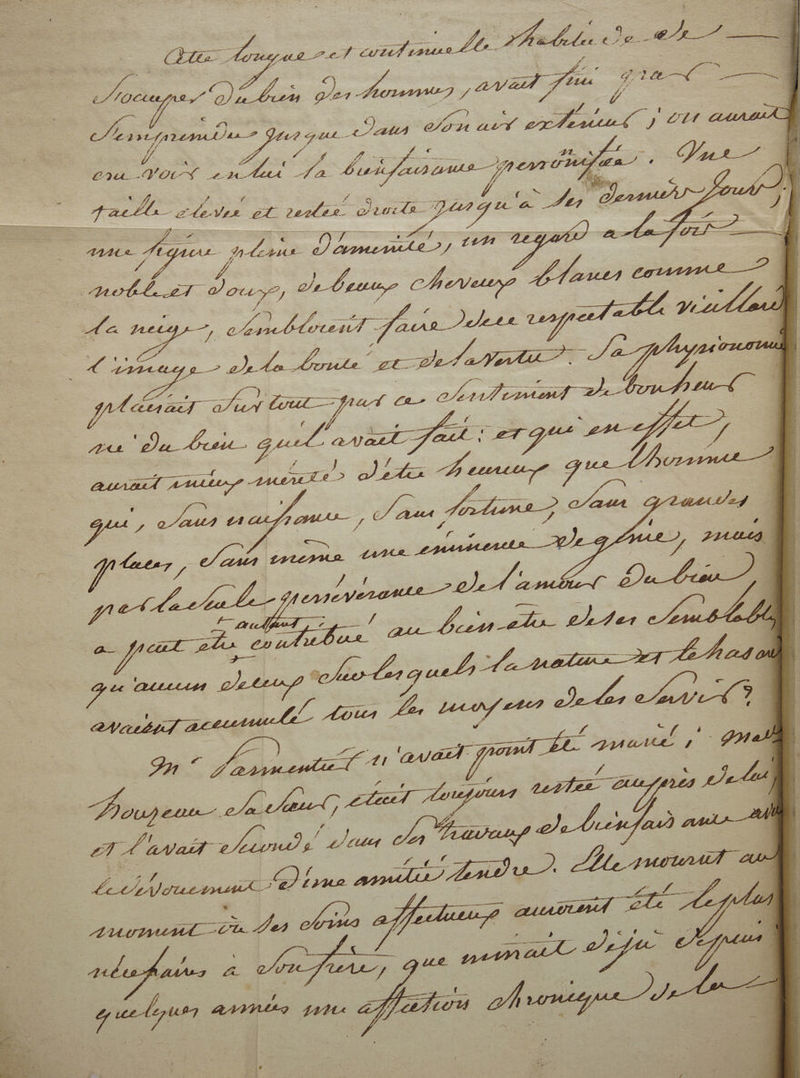 Cette longue et continuelle habitude de
s'occuper du bien des hommes, avait fini par
s'empreindre jusque dans son air extérieur ; on aurait
cru voir en lui la bienfaisance personifiée. Une
taille elevée et restée droite jusqu'à ses derniers jours ;
une figure pleine d'aménité, un regard a la fois
noble et doux, de beaux cheveux blancs comme
la neige, sembloient faire de ce respectable vieillard
l'image de la bonté et de la vertu. Sa physionomie
plaisait surtout par ce sentiment de bonheur
né du bien quil avait fait : et qui en effet,
aurait mieux mérité d'être heureux que l'homme
qui, sans naissance, sans fortune, sans grandes
places, sans même une éminence de génie, mais
par la seule persévérance de l'amour du bien,
a peut être autant contribué au bien-être de ses semblables
qu'aucun de ceux sur lesquels la nature et le hasard
avaient accumulé tous les moyens de les servir ?
Mr Parmentier n'avait point été marié ; Made
houzeau sa sœur, était toujours restée auprès de lui,
et l'avait secondé dans ses travaux de bienfaisance avec
le dévouement d'une amitié tendre. Elle mourut au
moment où ses soins affectueux auroient été le plus
nécessaires à son frère, que minait déjà depuis
quelques années une affection chronique de la